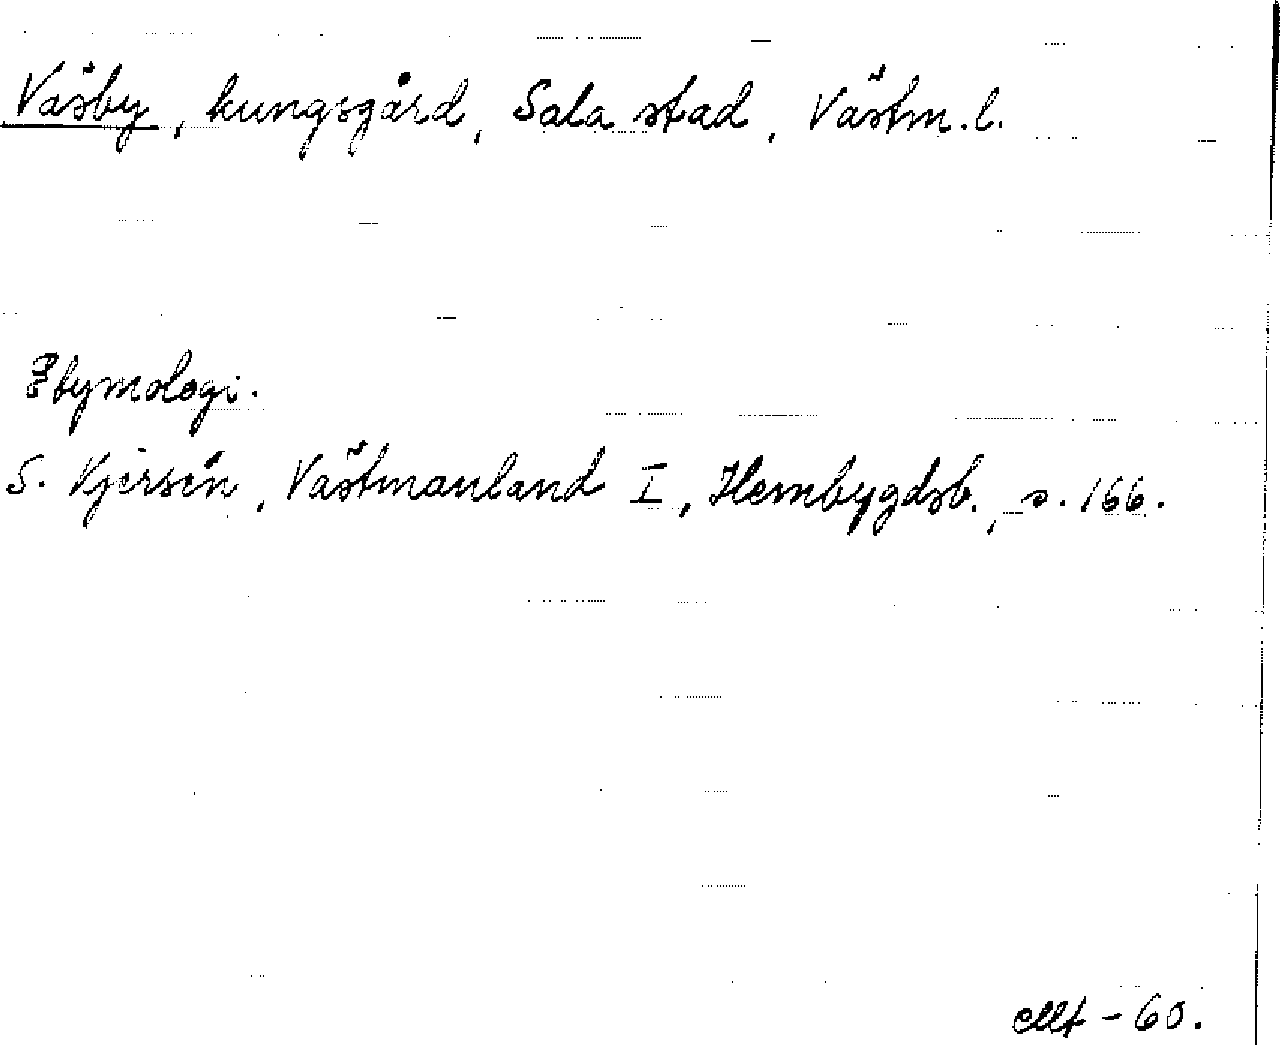 Väsby, kungsgård, Sala stad, Västm. l.
Etymologi.
S. Kjersén, Västmanland I, Hembygdsb., s. 166.
- 60.